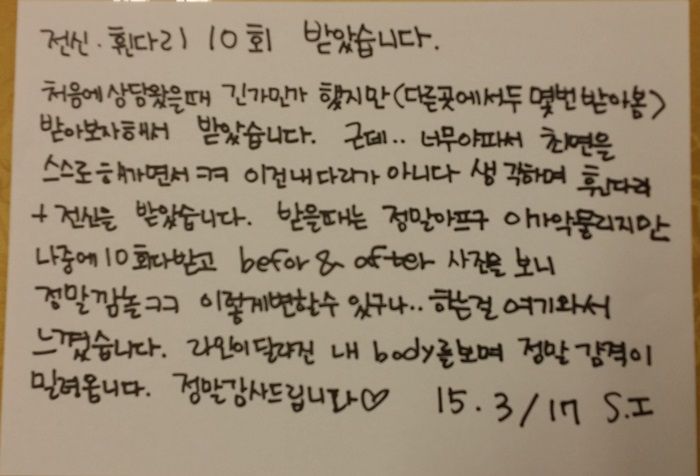 전신·휜다리 10회 받았습니다.
처음에 상담왔을때 긴가민가 했지만(다른곳에서두 몇번 받아봄)
받아보자해서 받았습니다. 근데.. 너무아파서 최면을
스스로 해가면서 ㅋㅋ 이건 내 다리가 아니다 생각하며 휜다리
+ 전신을 받았습니다. 받을때는 정말아프구 이가악물리지만
나중에 10회다받고 befor & after 사진을 보니
정말깜놀ㅋㅋ 이렇게변할수 있구나.. 하는걸 여기와서
느꼈습니다. 라인이달라진 내 body를보며 정말 감격이
밀려옵니다. 정말감사드립니다♡ 15. 3/17 S.I